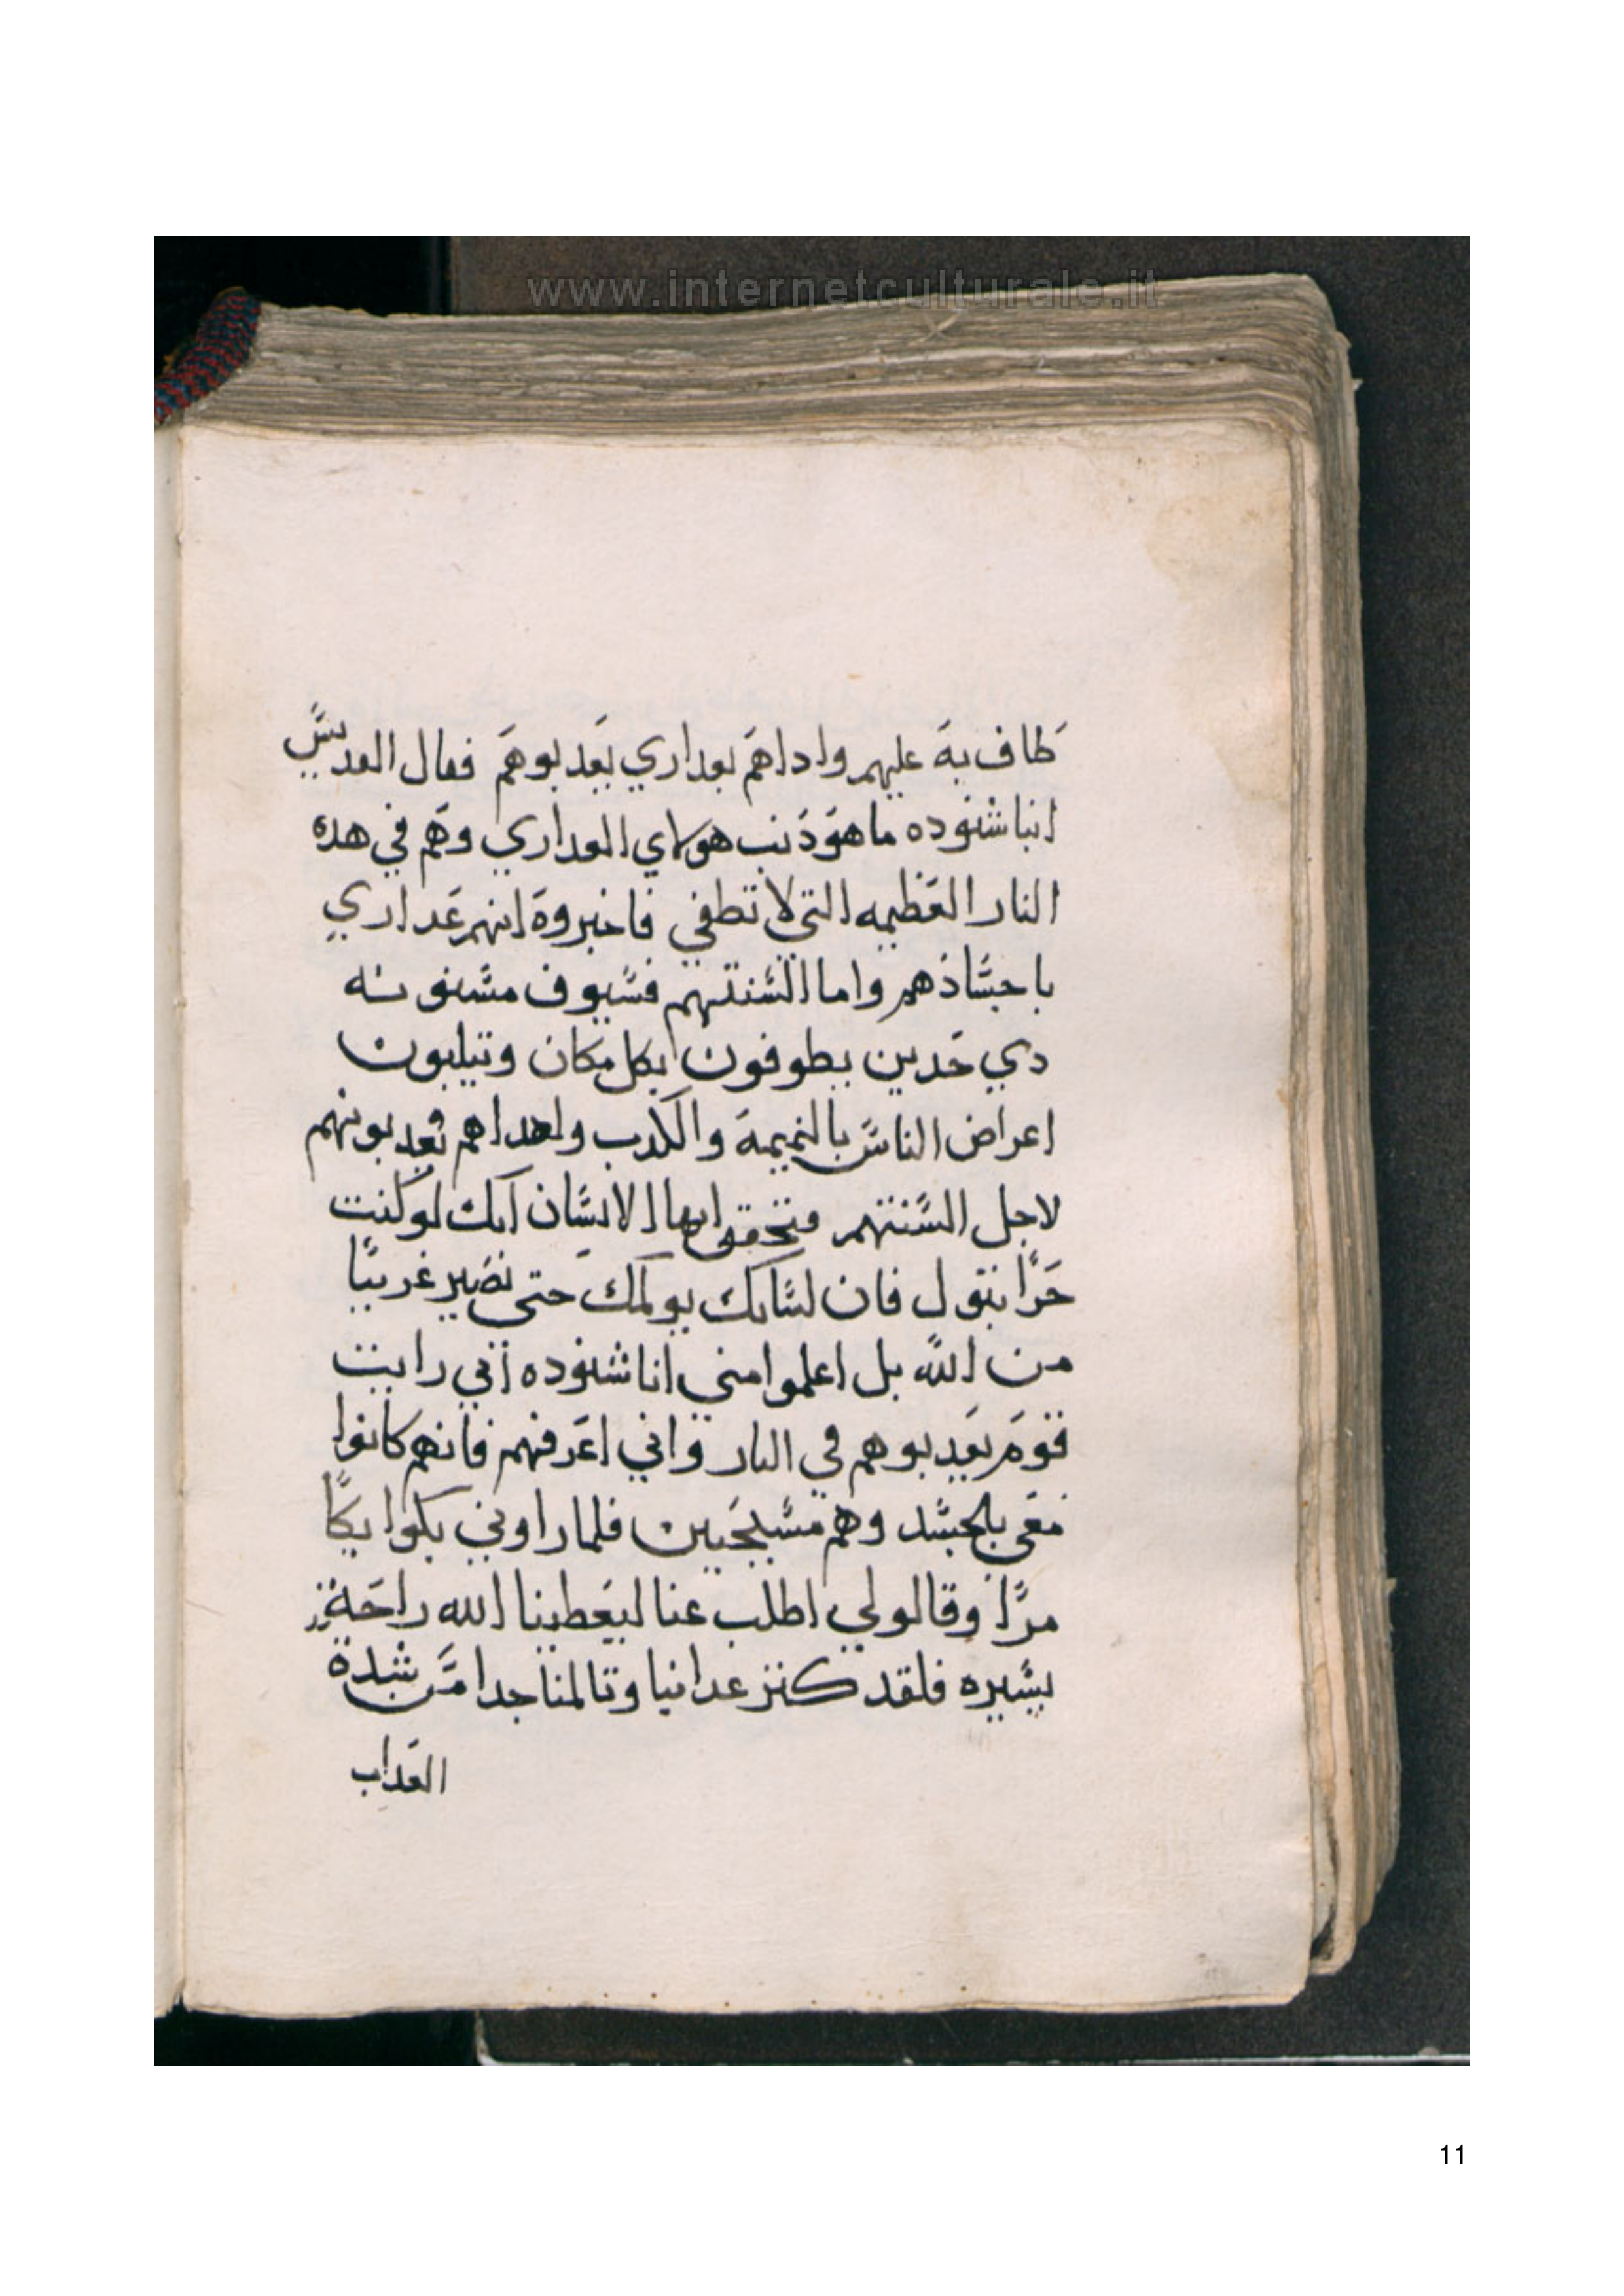 www.internetculturale.it
طاف به عليهم وادا هم بعداري يعدبوهم فقال القديس
انبا شنوده ما هو ذنب هولاي العداري وهم في هده
النار العظيمه التي لا تطفي فاخبروه انهم عداري
باجسادهم واما السنتهم فسيوف مسنونه
دي حدين يطوفون بكل مكان ويتلبون
اعراض الناس بالنميمة والكدب واهدا هم يعدبونهم
لاجل السنتهم فتحقق ايها الانسان انك لو كنت
حرا بتول فان لسانك يولمك حتى تصير غريبا
من الله بل اعلموا مني انا شنوده اني رايت
قوم يعدبوهم في النار واني اعرفهم فانهم كانوا
معي بالجسد وهم مسيحيين فلما راوني بكوا بكا
مرا وقالو لي اطلب عنا ليعطينا الله راحة
يسيره فلقد كتر عدابنا وتالمنا جدا من شدة
العداب
11